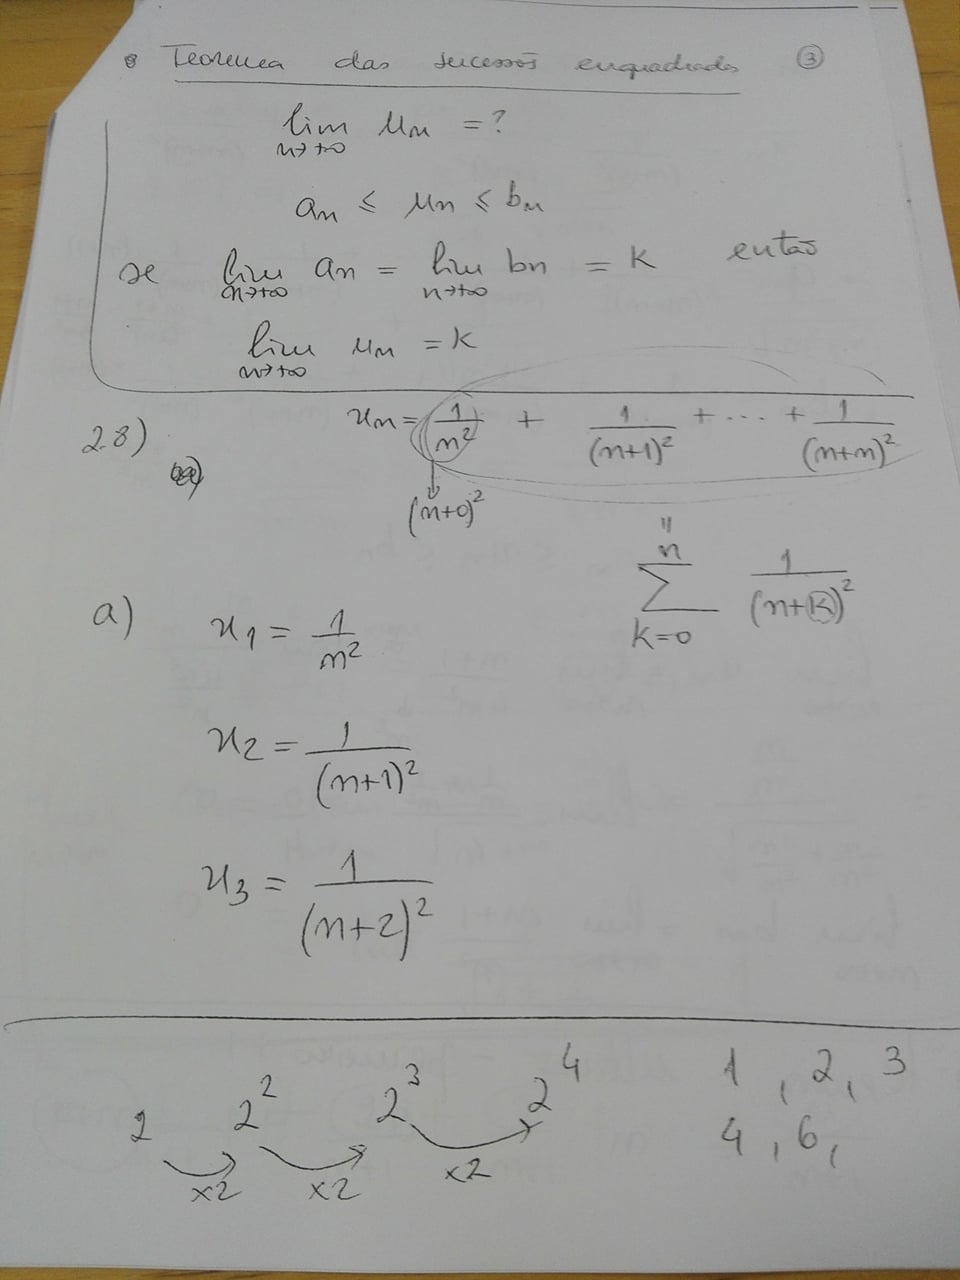 Teorema das sucessões enquadradas ③
lim n→+∞ un = ?
an ≤ un ≤ bn
se lim n→+∞ an = lim n→+∞ bn = k então
lim n→+∞ un = k
28) un = 1/n² + 1/(n+1)² + ... + 1/(n+n)²
(n+0)²
=
n Σ k=0 1/(n+k)²
a) u1 = 1/n²
u2 = 1/(n+1)²
u3 = 1/(n+2)²
2 2² 2³ 2⁴
x2 x2 x2
1 , 2 , 3
4 , 6 ,